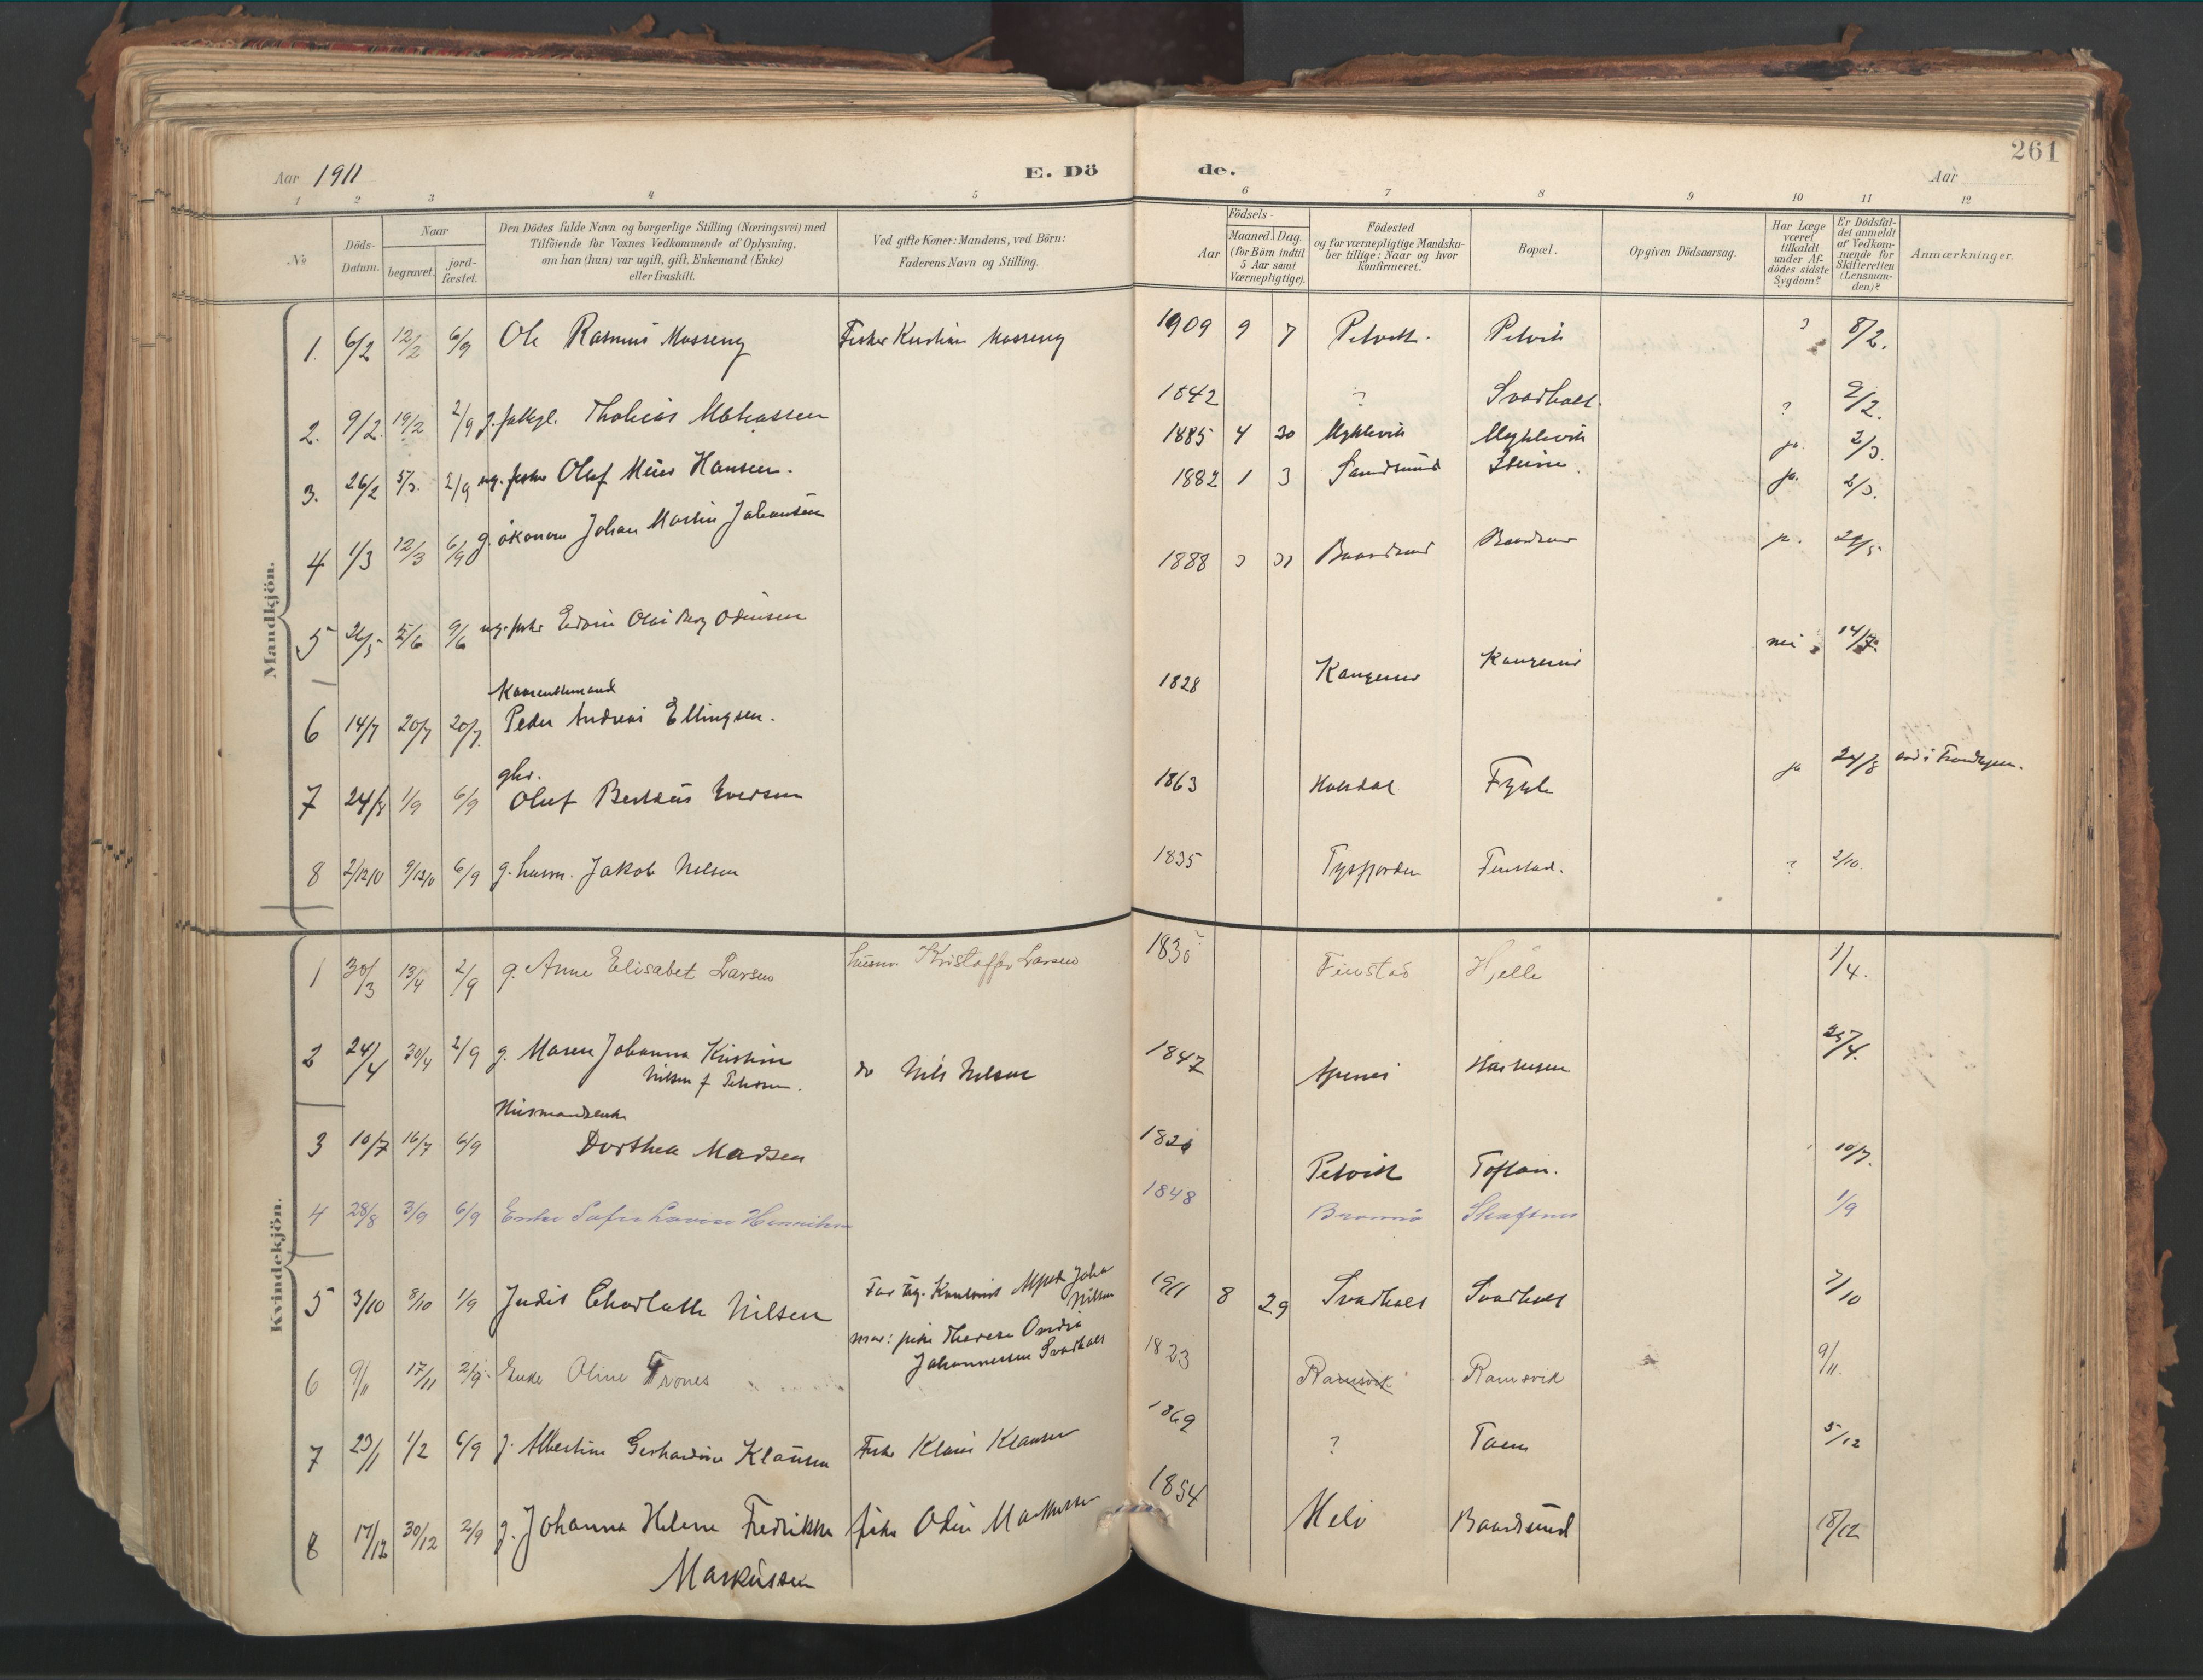 261
Aar 1911 E. Dö de. Aar
1 2 3 4 5 6 7 8 9 10 11 12
№ Döds-Datum. Naar begravet. jord-fæstet. Den Dödes fulde Navn og borgerlige Stilling (Næringsvei) med Tilföiende for Voxnes Vedkommende af Oplysning, om han (hun) var ugift, gift, Enkemand (Enke) eller fraskilt. Ved gifte Koner: Mandens, ved Börn: Faderens Navn og Stilling. Födsels- Aar Maaned. Dag. (for Börn indtil 5 Aar samt Værnepligtige). Födested og for værnepligtige Mandskaber tillige: Naar og hvor konfirmeret. Bopæl. Opgiven Dödsaarsag. Har Læge været tilkaldt under Afdödes sidste Sygdom? Er Dödsfaldet anmeldt af Vedkommende for Skifteretten (Lensmanden)? Anmærkninger.
Mandkjön.
1. 6/2 12/2 6/9 Ole Rasmus Mosseng Fisker Kristian Mosseng 1909 9 7 Petvik. Petvik ? 8/2.
2. 9/2 19/2 2/9 g. Thobias 1842 ? Svadhals. ? 9/2.
3. 26/2 5/3. 2/9 ug. fisker Olaf Meier Hansen. 1885 4 30 Myklevik Myklevik ja. 2/3.
4 1/3 12/3 6/9 g. økonom Johan Martin Johansen 1882 1 3 Sandsund Steine. ja. 2/3.
5 26/5 5/6 9/6 ug. fisker Edvin Olai Berg Odinsen 1888 3 31 Baardsund Baardsund ja. 29/5
Kaarenkemand
6 14/7 20/7 20/7. Peder Andreas Ellingsen. 1828 nei 14/7.
gbr.
7 24/8 1/9 6/9 Oluf Bertheus Iversen 1863 ja 24/8
8 2/1210 9/1210 6/9 g. husm. Jakob Nilsen 1835 Tysfjorden Finstad. ? 2/10.
Kvindekjön.
1 30/3 13/4 2/9 g. Anne Elisabet Larsen husm. Kristoffer Larsen 1830 Finstad Hjelle 1/4.
2 24/4 30/4 2/9 g. Maren Johanna Kristine do Nils Nilsen 1847 25/4.
Nilsen f. Petersen.
Husmandsenke
3 10/7 16/7 6/9 Dorthea Madsen Petvik Toften. 10/7.
4 28/8 3/9 6/9 Enke Sofie Lovise Henriksen 1848 Brønnø Skaftnes 1/9
5 3/10 8/10 1/9 Judit Charlotte Nilsen Far: Johan Nilsen 1911 8 29 Svadhals Svadhals 7/10
mor: pike Therese Ovidia
Johannesen Svadhals
6 9/11 17/11 2/9 Enke Oline Trones 1823 Ramsvik Ramsvik 9/11.
7 23/1 1/2 6/9 g. Albertine Gerhardine Klausen Fisker Klaus Klausen 1869 ? Taen 5/12
8 17/12 30/12 2/9 g. Johanna Helene Fredrikke fisker Odin Markussen 1854 Melø Baardsund 18/12
Markussen